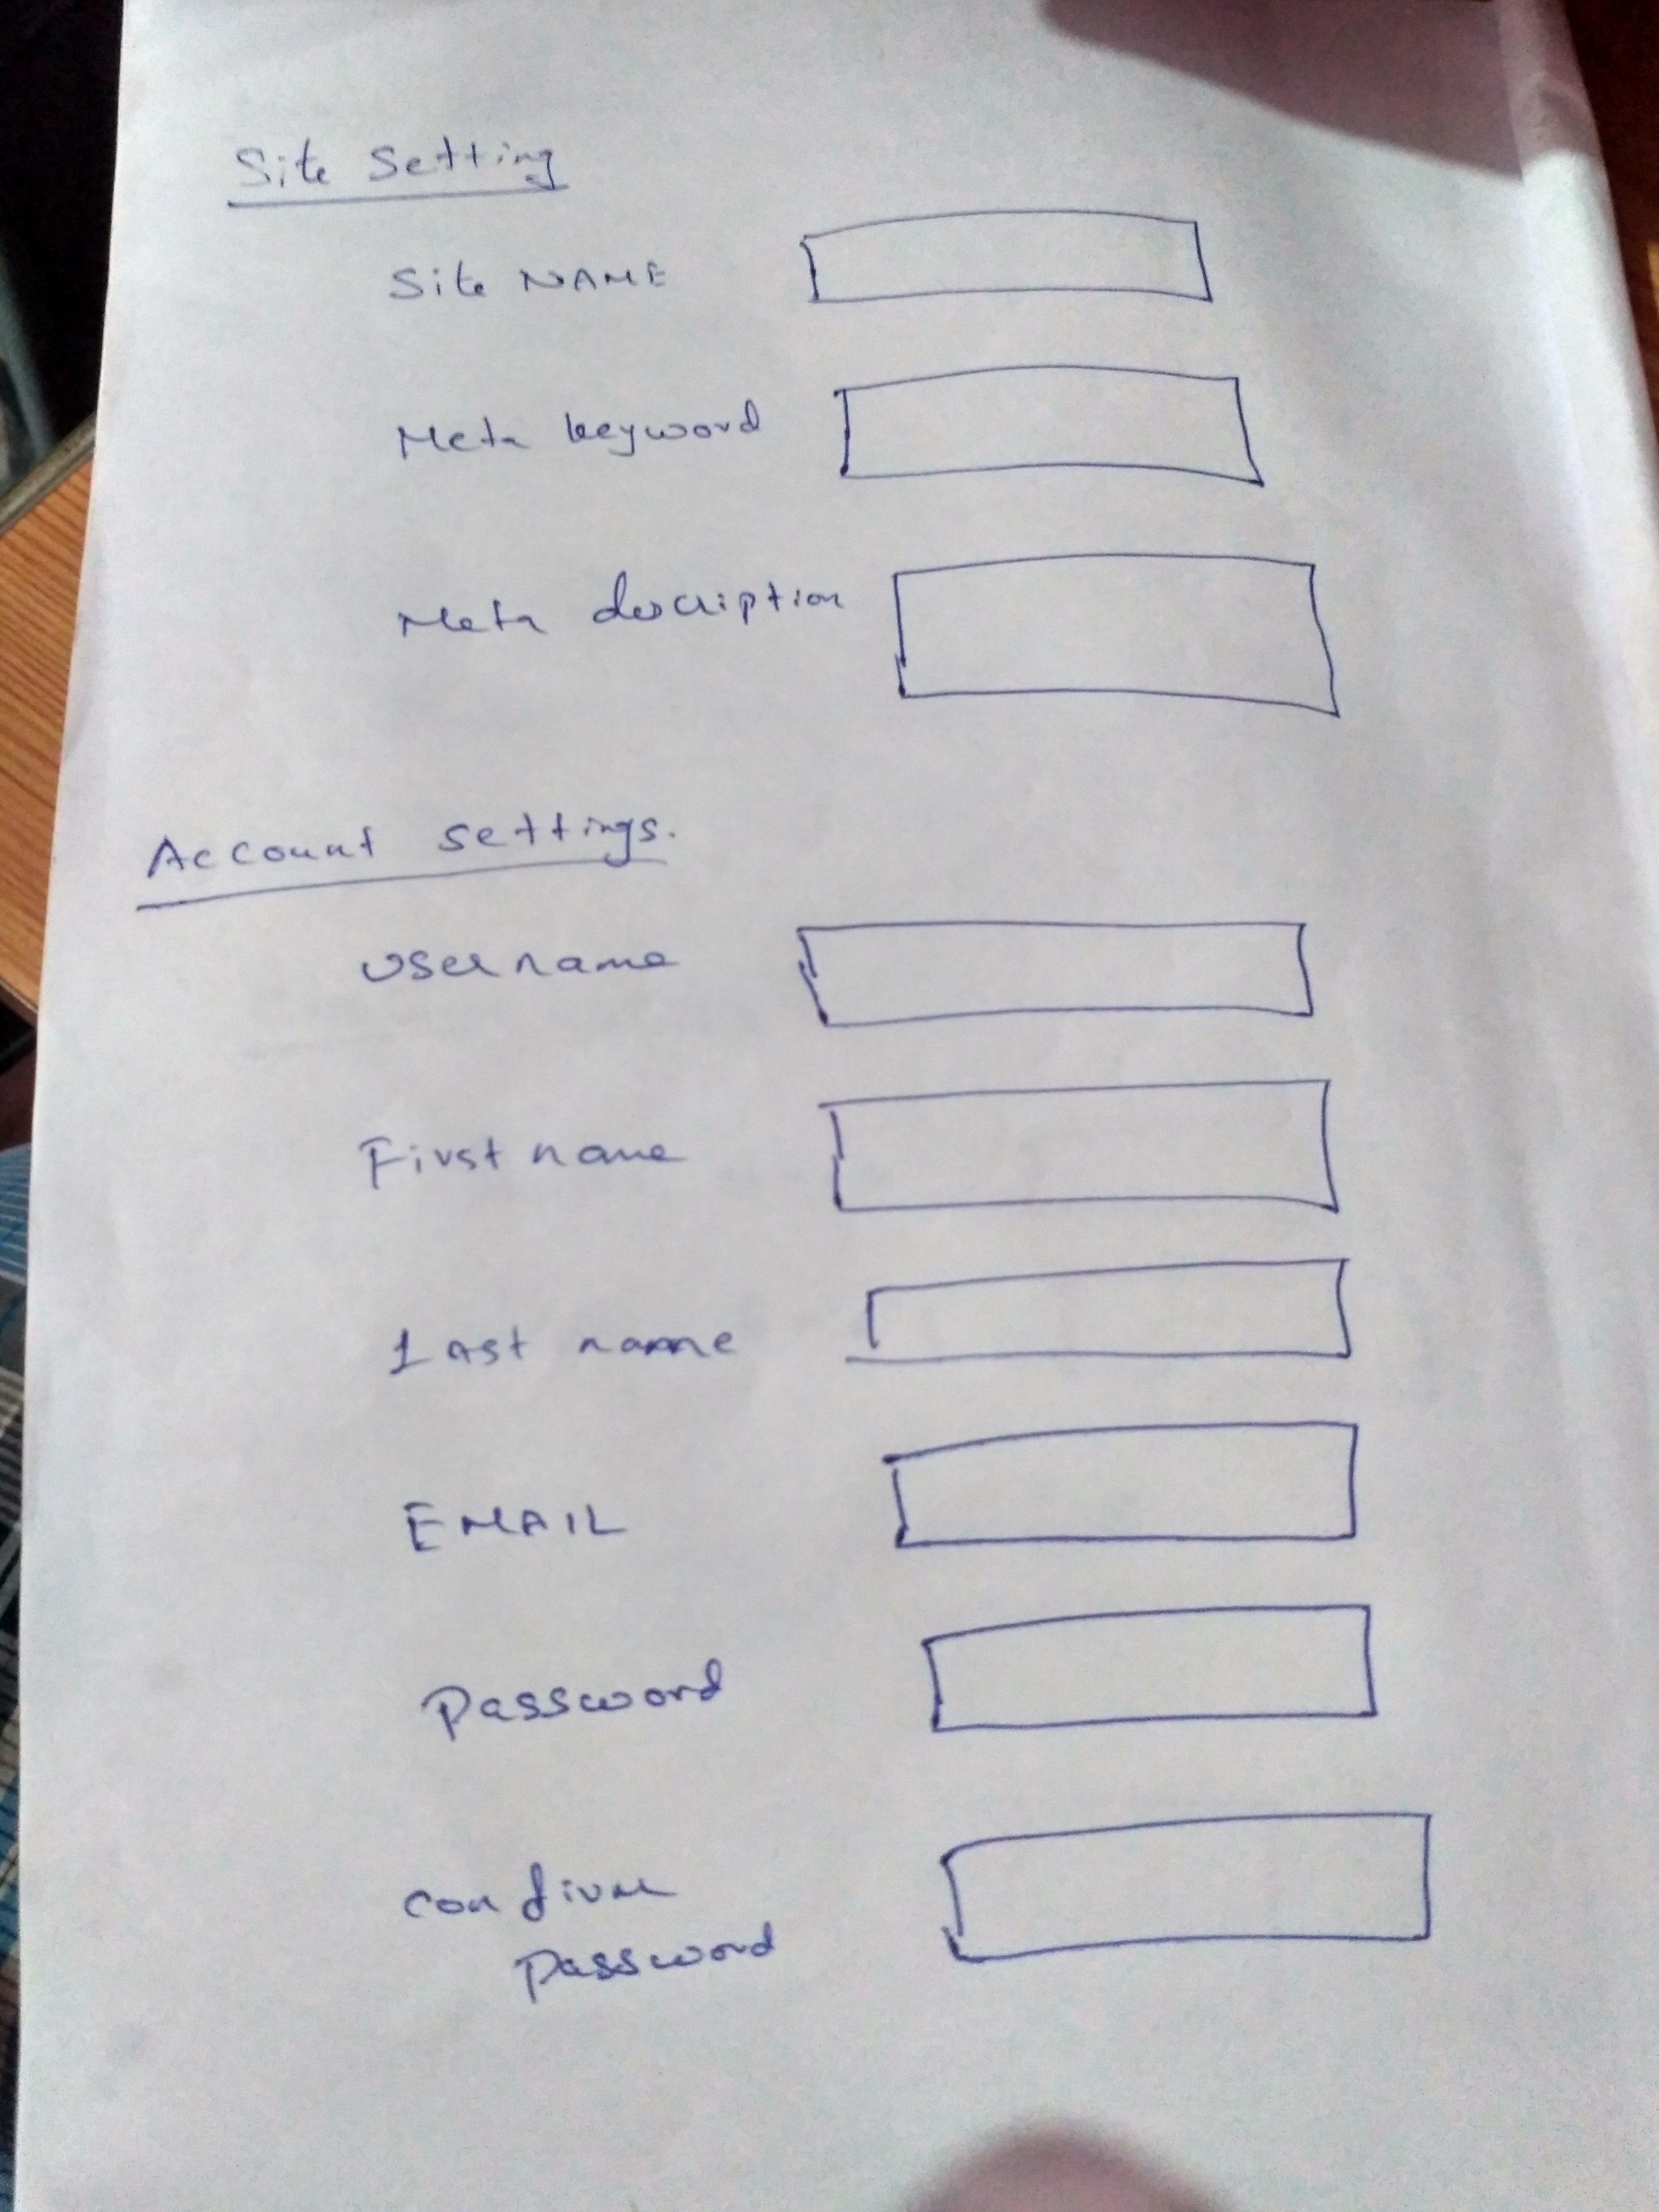 Site Setting
Site NAME
Meta keyword
Meta description
Account settings.
Username
First name
Last name
EMAIL
Password
Confirm
Password